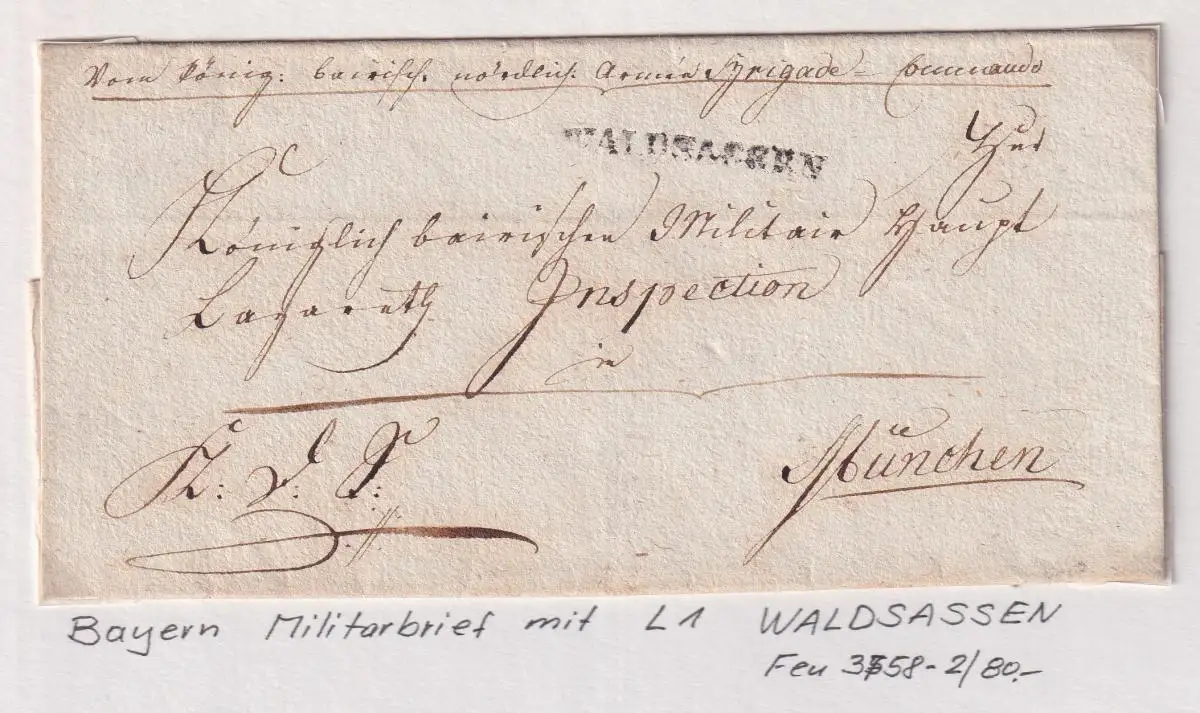 Vom König: bairisch. nördlich. Armée Brigade-Commando
WALDSASSEN
Zur
Königlich bairischen Militair Haupt
Lazareth Inspection
in
K: d: S:
München
Bayern Militärbrief mit L1 WALDSASSEN
Feu 3558-2/80.-